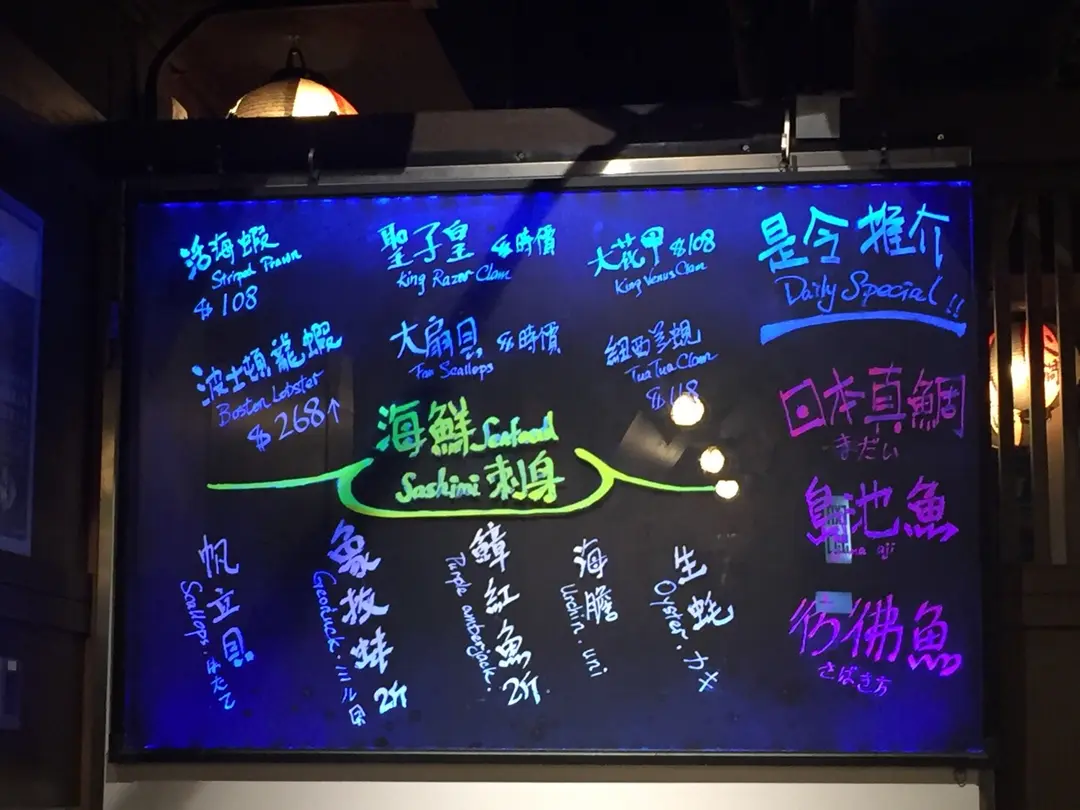 活海蝦
Striped Prawn
$108
聖子皇 $時價
King Razor Clam
大花甲 $108
King Venus Clam
是令推介
Daily Special!!
波士頓龍蝦
Boston Lobster
$268↑
大扇貝 $時價
Fan Scallops
紐西蘭蜆
TuaTua Clam
$118
海鮮 Seafood
Sashimi 刺身
日本真鯛
まだい
池魚
aji
彷彿魚
帆立貝
Scallops. ほたて
象拔蚌 2斤
Geoduck. ミル貝
鱆紅魚 2斤
Purple amberjack.
海膽
Urchin. uni
生蚝
Oyster. カキ